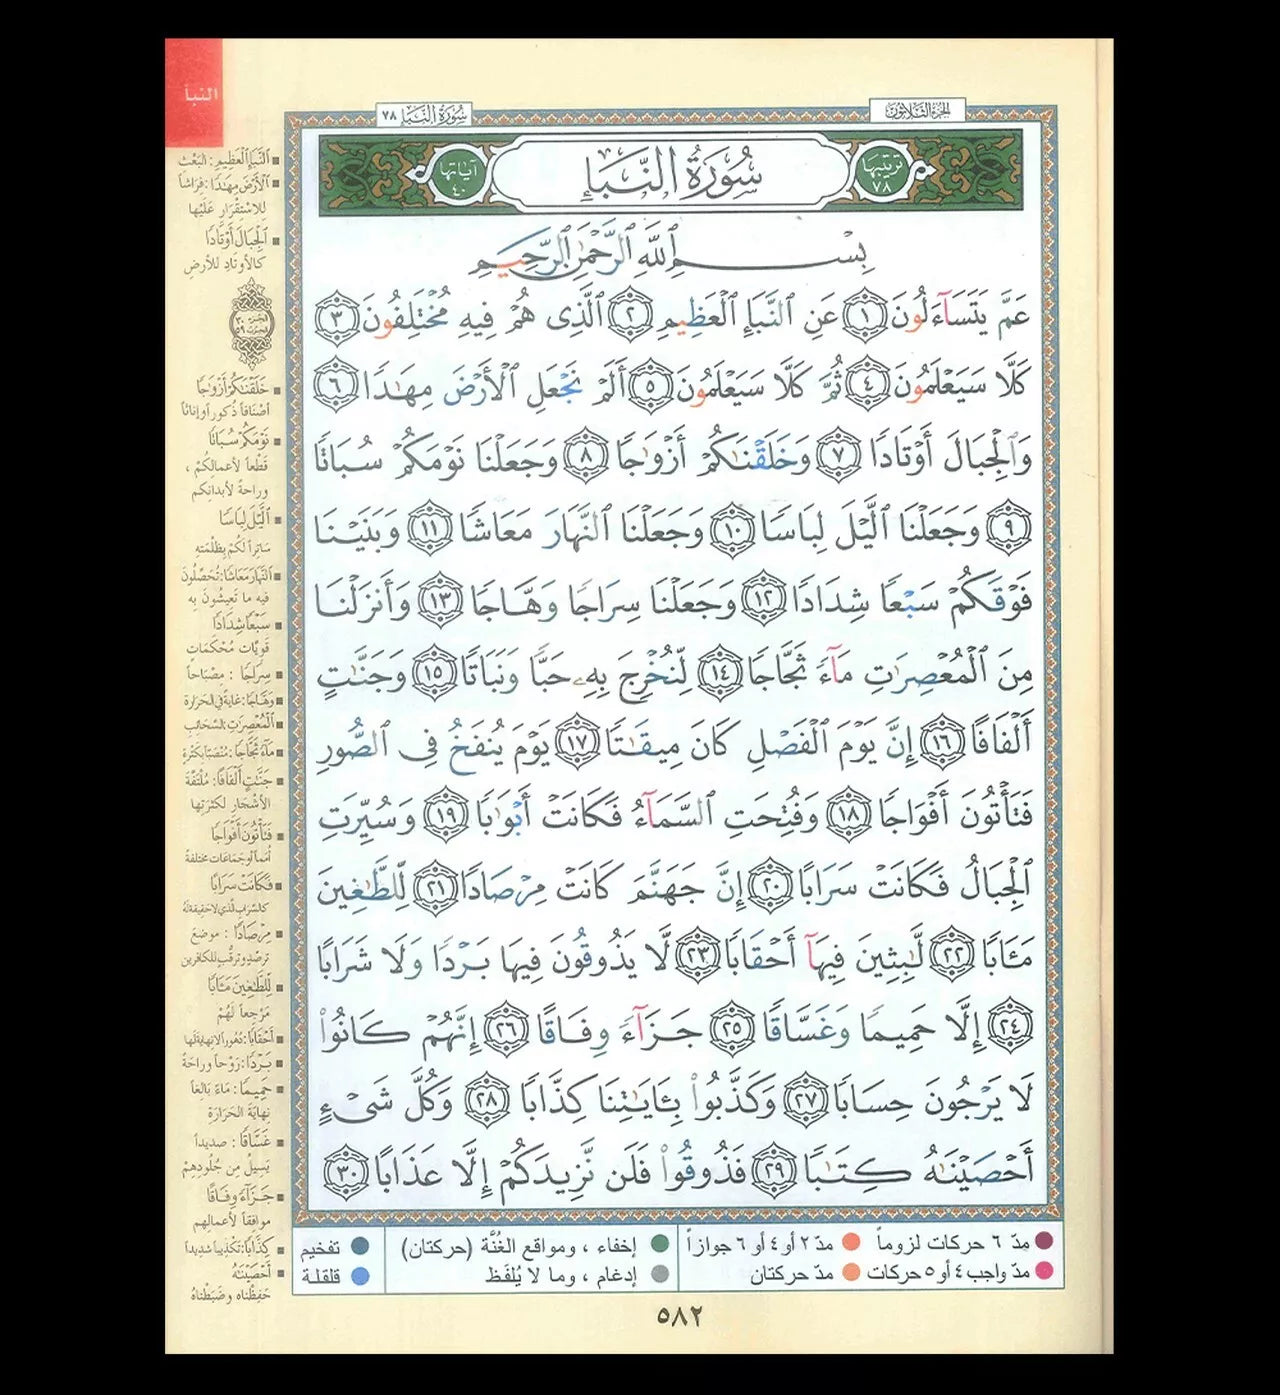 النبأ
الجزء الثلاثون
سُورَةُ النَّبَإِ ٧٨
ترتيبها ٧٨
سُورَةُ النَّبَإِ
آياتها ٤٠
بِسْمِ ٱللَّهِ ٱلرَّحْمَٰنِ ٱلرَّحِيمِ
عَمَّ يَتَسَآءَلُونَ ١ عَنِ ٱلنَّبَإِ ٱلْعَظِيمِ ٢ ٱلَّذِى هُمْ فِيهِ مُخْتَلِفُونَ ٣
كَلَّا سَيَعْلَمُونَ ٤ ثُمَّ كَلَّا سَيَعْلَمُونَ ٥ أَلَمْ نَجْعَلِ ٱلْأَرْضَ مِهَٰدًا ٦
وَٱلْجِبَالَ أَوْتَادًا ٧ وَخَلَقْنَٰكُمْ أَزْوَٰجًا ٨ وَجَعَلْنَا نَوْمَكُمْ سُبَاتًا
٩ وَجَعَلْنَا ٱلَّيْلَ لِبَاسًا ١٠ وَجَعَلْنَا ٱلنَّهَارَ مَعَاشًا ١١ وَبَنَيْنَا
فَوْقَكُمْ سَبْعًا شِدَادًا ١٢ وَجَعَلْنَا سِرَاجًا وَهَّاجًا ١٣ وَأَنزَلْنَا
مِنَ ٱلْمُعْصِرَٰتِ مَآءً ثَجَّاجًا ١٤ لِّنُخْرِجَ بِهِۦ حَبًّا وَنَبَاتًا ١٥ وَجَنَّٰتٍ
أَلْفَافًا ١٦ إِنَّ يَوْمَ ٱلْفَصْلِ كَانَ مِيقَٰتًا ١٧ يَوْمَ يُنفَخُ فِى ٱلصُّورِ
فَتَأْتُونَ أَفْوَاجًا ١٨ وَفُتِحَتِ ٱلسَّمَآءُ فَكَانَتْ أَبْوَٰبًا ١٩ وَسُيِّرَتِ
ٱلْجِبَالُ فَكَانَتْ سَرَابًا ٢٠ إِنَّ جَهَنَّمَ كَانَتْ مِرْصَادًا ٢١ لِّلطَّٰغِينَ
مَـَٔابًا ٢٢ لَّٰبِثِينَ فِيهَآ أَحْقَابًا ٢٣ لَّا يَذُوقُونَ فِيهَا بَرْدًا وَلَا شَرَابًا
٢٤ إِلَّا حَمِيمًا وَغَسَّاقًا ٢٥ جَزَآءً وِفَاقًا ٢٦ إِنَّهُمْ كَانُوا۟
لَا يَرْجُونَ حِسَابًا ٢٧ وَكَذَّبُوا۟ بِـَٔايَٰتِنَا كِذَّابًا ٢٨ وَكُلَّ شَىْءٍ
أَحْصَيْنَٰهُ كِتَٰبًا ٢٩ فَذُوقُوا۟ فَلَن نَّزِيدَكُمْ إِلَّا عَذَابًا ٣٠
النَّبَإِ العَظِيمِ: البَعْث
الأَرْضَ مِهَٰدًا: فراشاً
للاسْتِقْرَارِ عَلَيْها
الجِبَالَ أَوْتَادًا
كالأوتادِ للأرضِ
خَلَقْنَٰكُمْ أَزْوَٰجًا
أصنافاً ذكوراً وإناثاً
نَوْمَكُمْ سُبَاتًا
قَطْعاً لأعمالِكُمْ،
وراحةً لأبدانِكم
اللَّيْلَ لِبَاسًا
سَاتِراً لَكُمْ بِظُلْمَتِهِ
النَّهَارَ مَعَاشًا: تُحَصِّلُونَ
فيهِ ما تَعِيشُونَ بِهِ
سَبْعًا شِدَادًا
قَوِيَّاتٍ مُحْكَمَاتٍ
سِرَاجًا: مِصْبَاحاً
وَهَّاجًا: غايةً في الحَرَارة
المُعْصِرَٰتِ: السَّحَائبِ
مَآءً ثَجَّاجًا: مُنْصَبّاً بكثرةٍ
جَنَّٰتٍ أَلْفَافًا: مُلْتَفَّةَ
الأشْجَارِ لكثرَتِها
فَتَأْتُونَ أَفْوَاجًا
أُمَماً أو جماعات مختلفة
فَكَانَتْ سَرَابًا
كالسَّرَابِ الَّذي لا حقيقةَ لَهُ
مِرْصَادًا: موضعَ
تَرَصُّدٍ وتَرَقُّبٍ للكافرين
لِّلطَّٰغِينَ مَـَٔابًا
مَرْجِعاً لَهُمْ
أَحْقَابًا: دُهُوراً لا نهايةَ لَها
بَرْدًا: رَوْحاً وراحةً
حَمِيمًا: ماءً بالغاً
نِهايةَ الحَرَارَةِ
غَسَّاقًا: صديداً
يَسِيلُ مِن جُلُودِهِمْ
جَزَآءً وِفَاقًا
موافقاً لأعمالِهم
كِذَّابًا: تَكْذِيباً شديداً
أَحْصَيْنَٰهُ
حَفِظْنَاه وضَبَطْنَاهُ
مدّ ٦ حركات لزوماً
مدّ ٢ أو ٤ أو ٦ جوازاً
إخفاء، ومواقع الغُنَّة (حركتان)
تفخيم
مدّ واجب ٤ أو ٥ حركات
مدّ حركتان
إدغام، وما لا يُلفَظ
قلقلة
٥٨٢